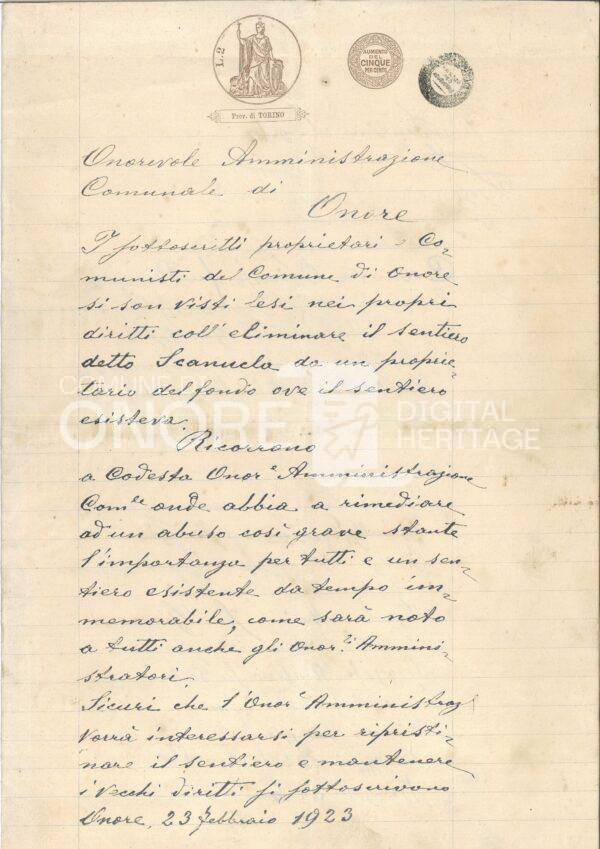 L. 2
AUMENTO
DEL
CINQUE
PER CENTO
Prov. di TORINO
Onorevole Amministrazione
Comunale di
Onore
I sottoscritti proprietari e Co-
munisti del Comune di Onore
si son visti lesi nei propri
diritti coll'eliminare il sentiero
detto Scanuela da un proprie-
tario del fondo ove il sentiero
esisteva.
Ricorrono
a Codesta Onor.e Amministrazione
Com.le onde abbia a rimediare
ad un abuso così grave stante
l'importanza per tutti e un sen-
tiero esistente da tempo im-
memorabile, come sarà noto
a tutti anche gli Onor.li Ammini-
stratori.
Sicuri che l'Onor.e Amministraz.
vorrà interessarsi per ripristi-
nare il sentiero e mantenere
i vecchi diritti si sottoscrivono
Onore, 23 febbraio 1923
COMUNE
ONORE
DIGITAL
HERITAGE